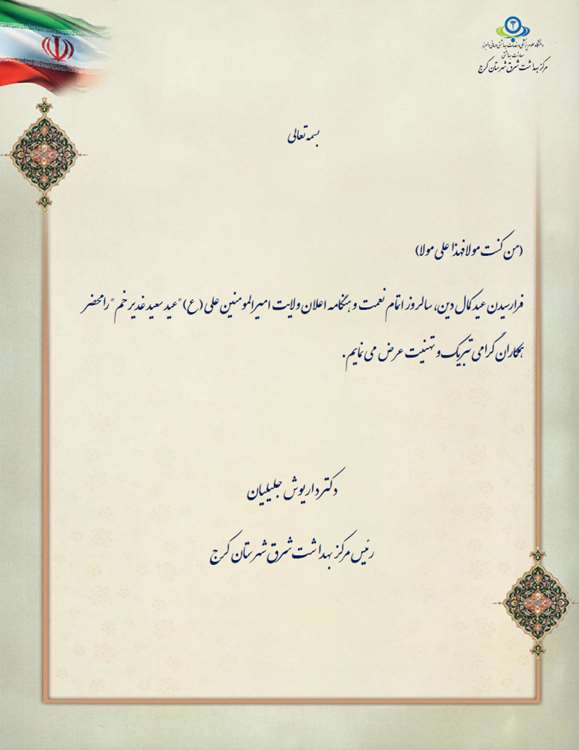 دانشگاه علوم پزشکی و خدمات بهداشتی درمانی البرز
معاونت بهداشتی
مرکز بهداشت شرق شهرستان کرج
بسمه تعالی
(من کنت مولاه فهذا علی مولا)
فرارسیدن عید کمال دین، سالروز اتمام نعمت و هنگامه اعلان ولایت امیرالمومنین علی (ع) "عید سعید غدیر خم" را محضر
همکاران گرامی تبریک و تهنیت عرض می نمایم.
دکتر داریوش جلیلیان
رئیس مرکز بهداشت شرق شهرستان کرج